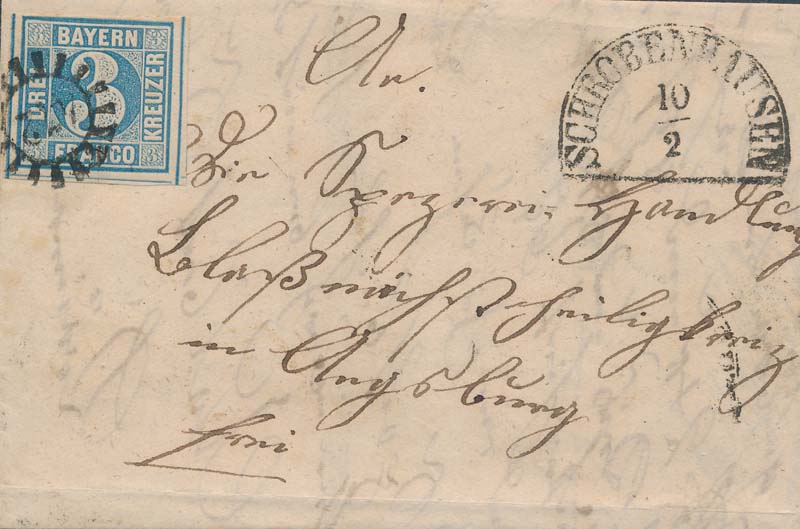 BAYERN
3
DREI
KREUZER
FRANCO
SCHROBENHAUSEN
10
2
An.
die Spezerei-Handlung
Blaß nächst heiligkreiz
in Augsburg
frei